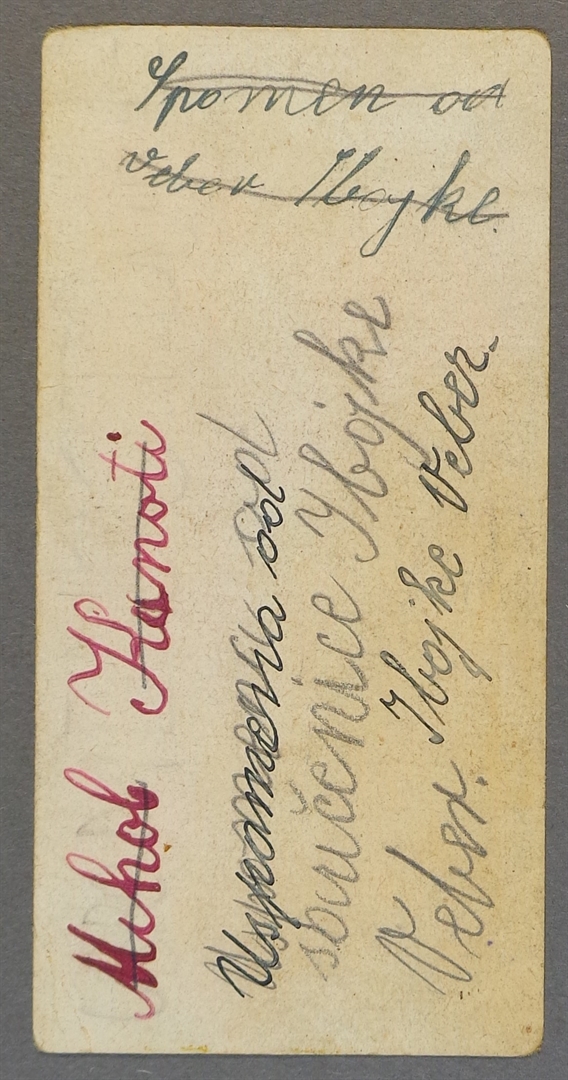 Spomen od
Veber Ibojke
Mihob Kanoti
Uspomena od
sučenice Ibojke
Veber. Ibojke Veber.